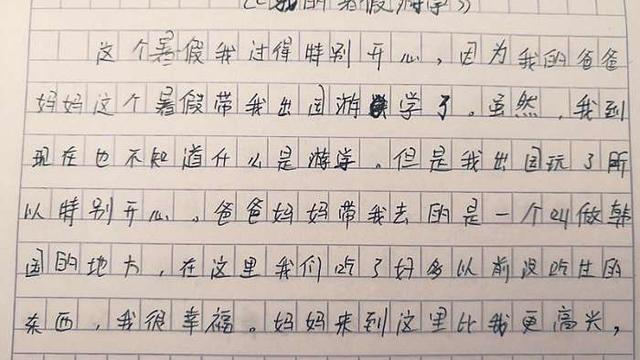 《我的暑假游学》
这个暑假我过得特别开心，因为我的爸爸
妈妈这个暑假带我出国游学了。虽然，我到
现在也不知道什么是游学。但是我出国玩了所
以特别开心。爸爸妈妈带我去的是一个叫做韩
国的地方，在这里我们吃了好多以前没吃过的
东西，我很幸福。妈妈来到这里比我更高兴，